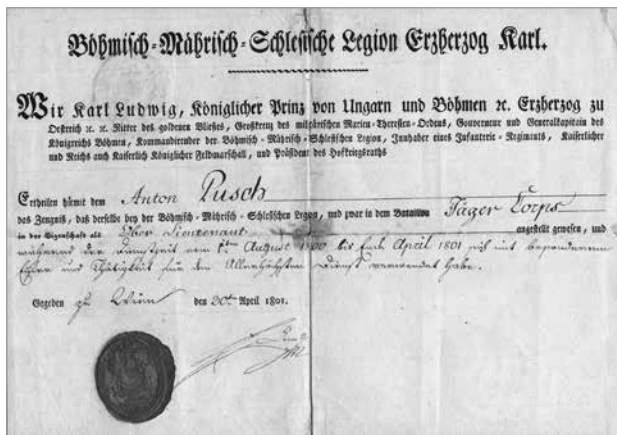 Böhmisch-Mährisch-Schlesische Legion Erzherzog Karl.
Wir Karl Ludwig, Königlicher Prinz von Ungarn und Böhmen ꝛc. Erzherzog zu
Oestreich ꝛc. ꝛc. Ritter des goldenen Vließes, Großkreuz des militärischen Marien-Theresien-Ordens, Gouverneur und Generalkapitain des
Königreichs Böhmen, Kommandirender der Böhmisch-Mährisch-Schlesischen Legion, Innhaber eines Infanterie-Regiments, Kaiserlicher
und Reichs auch Kaiserlich Königlicher Feldmarschall, und Präsident des Hofkriegsraths
Ertheilen hiemit dem Anton Pusch
das Zeugniß, daß derselbe bey der Böhmisch-Mährisch-Schlesischen Legion, und zwar in dem Bataillon Jäger Corps
in der Eigenschaft als Ober Lieutenant angestellt gewesen, und
während der Dienstzeit vom 1ten August 1800 bis Ende April 1801 sich mit besonderem
Eifer und Thätigkeit für den Allerhöchsten Dienst verwendet habe.
Gegeben zu Wien den 20ten April 1801.